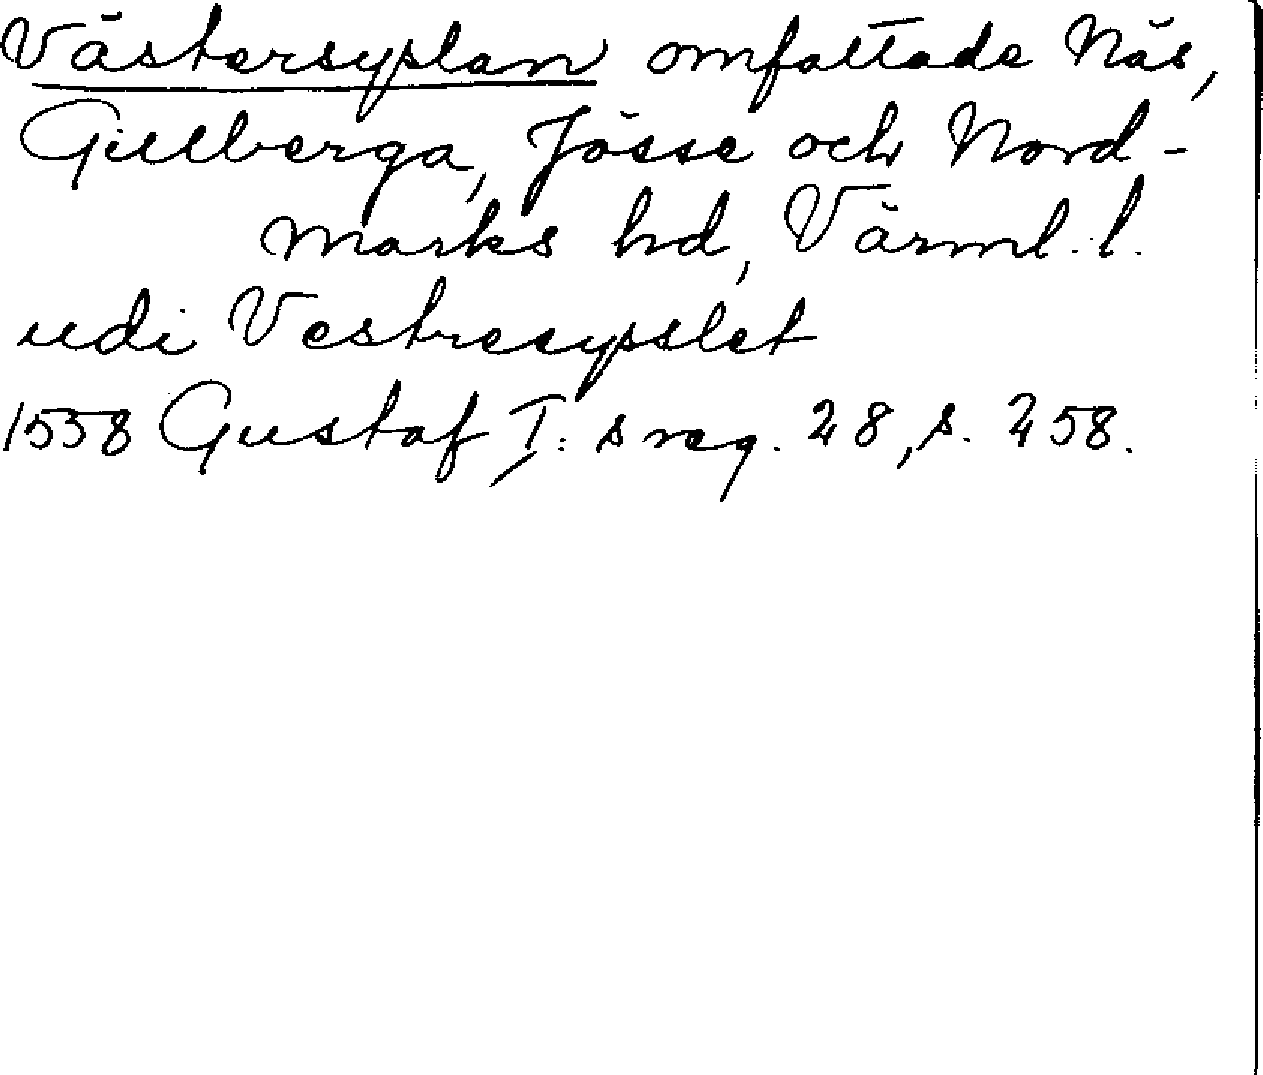 Västersyslan omfattade Näs,
Gillberga, Jösse och Nord-
marks hd, Värml. l.
udi Vestresysslet
1558 Gustaf I:s reg. 28, s. 258.